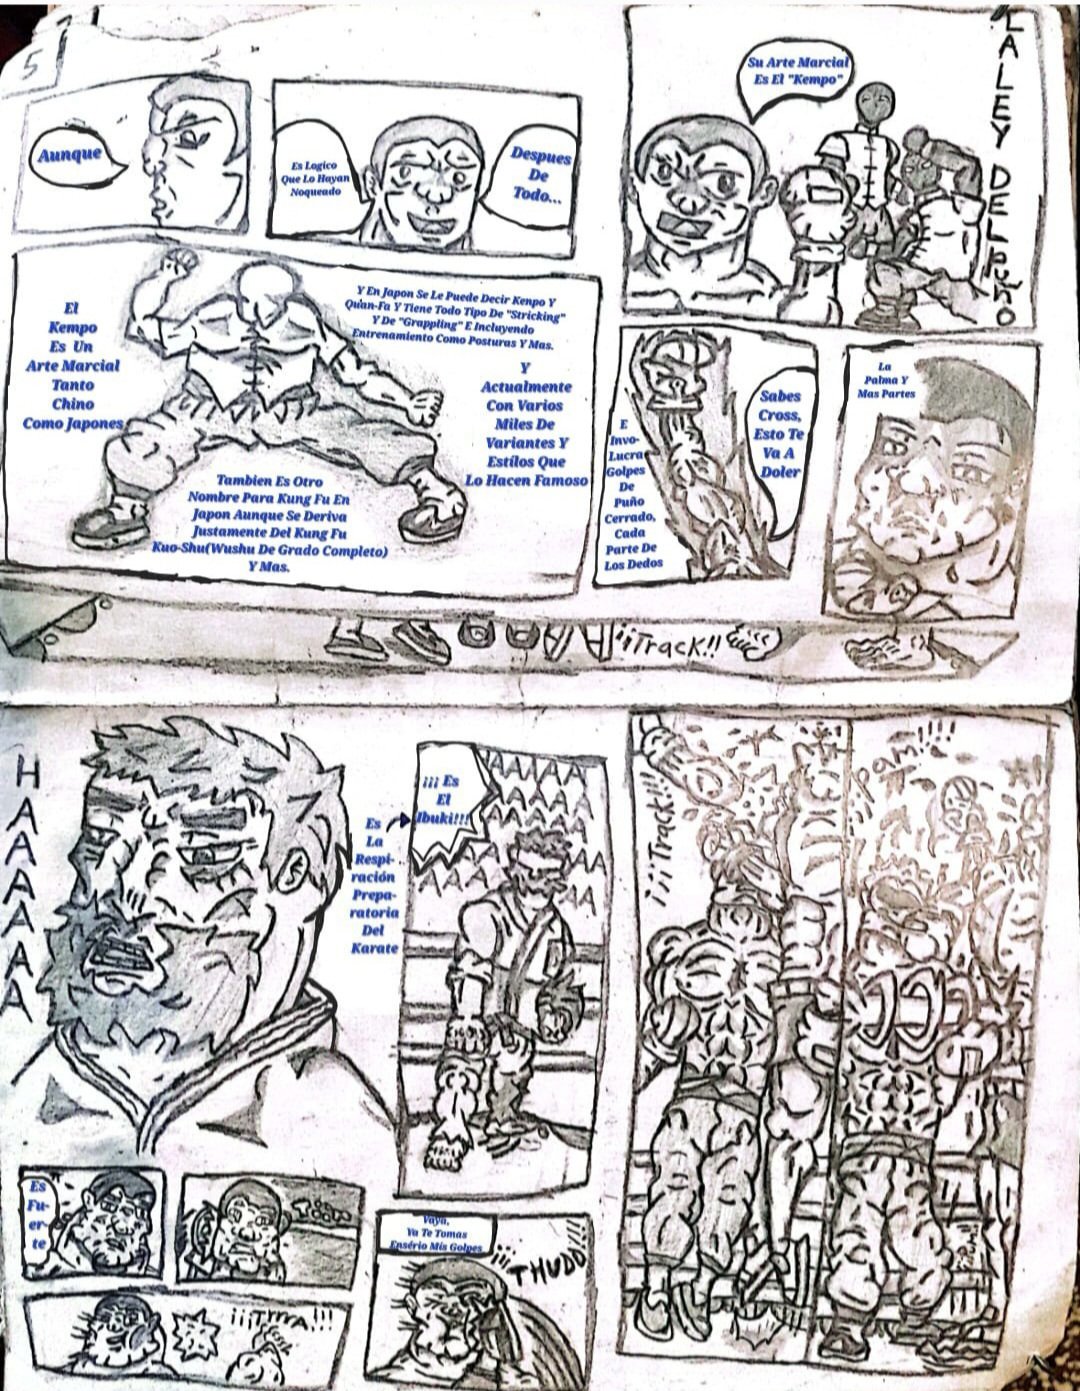 5
Aunque
Es Logico
Que Lo Hayan
Noqueado
Despues
De
Todo...
Su Arte Marcial
Es El "Kempo"
LA LEY DEL PUÑO
El
Kempo
Es Un
Arte Marcial
Tanto
Chino
Como Japones
Y En Japon Se Le Puede Decir Kenpo Y
Quan-Fa Y Tiene Todo Tipo De "Stricking"
Y De "Grappling" E Incluyendo
Entrenamiento Como Posturas Y Mas.
Y
Actualmente
Con Varios
Miles De
Variantes Y
Estilos Que
Lo Hacen Famoso
Tambien Es Otro
Nombre Para Kung Fu En
Japon Aunque Se Deriva
Justamente Del Kung Fu
Kuo-Shu(Wushu De Grado Completo)
Y Mas.
E
Invo-
Lucra
Golpes
De
Puño
Cerrado,
Cada
Parte De
Los Dedos
Sabes
Cross,
Esto Te
Va A
Doler
La
Palma Y
Mas Partes
¡¡Track!!
HAAAAAA
¡¡¡ Es
El
Ibuki!!!
Es
La
Respi-
ración
Prepa-
ratoria
Del
Karate
AAIAA
AAAA
AAAA
AAA
¡¡¡Track!!!
¡¡¡Pam!!!!
Es
Fu-
er-
te
Vaya,
Ya Te Tomas
Ensério Mis Golpes
¡¡¡THUDD!!!